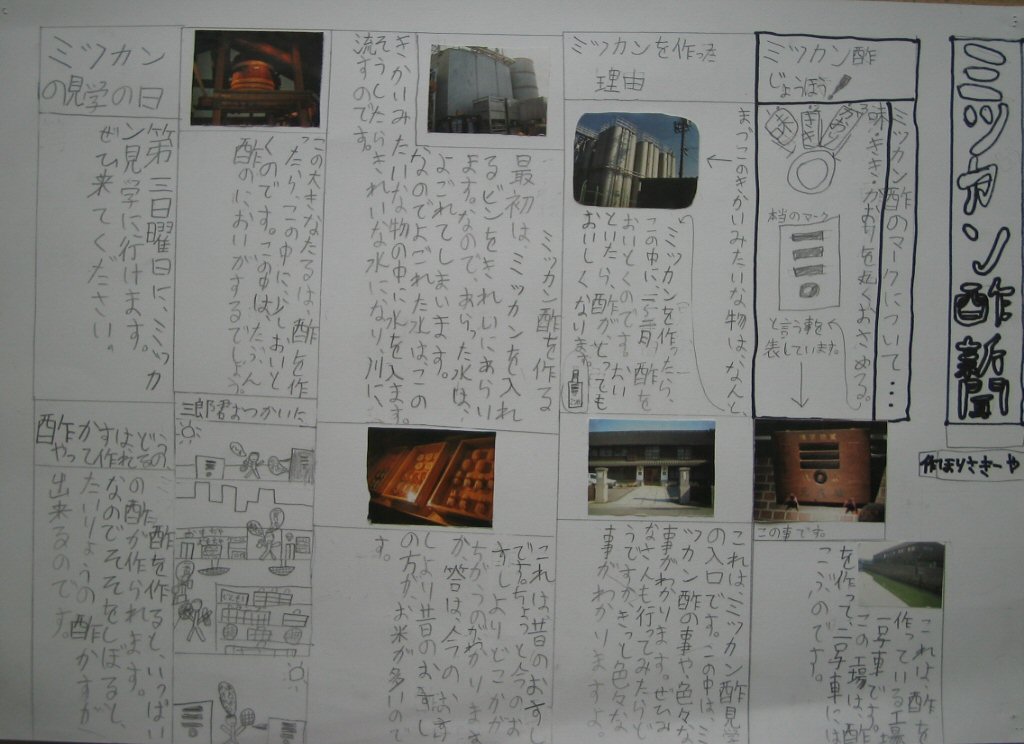 ミツカン酢新聞
作ほりさきーや
ミツカン酢
じょうほう
ミツカン酢のマークについて・・・
味・きき・かおりを丸くおさめる。
味
きき
かおり
本当のマーク
と言う事を
表しています。
この事です。
これは、酢を
作っている工場
この工場は、酢
を作って、
こぶのです。
ミツカンを作った
理由
まづこのきかいみたいな物は、なんと、
ミツカンを作ったら、
この中に、二、三ヶ月、酢を
おいとくのです。だいたい
といたら、酢が、とっても
おいしくなります。
これは、ミツカン酢見学
の入口です。この中は、ミ
ツカン酢の事や色々な
事がわかります。ぜひみ
なさんも行ってみたらど
うですか。きっと色々な
事がわかりますよ。
ミツカン酢を作る
最初は、ミツカンを入れ
るビンをきれいにあらい
ます。なので、あらった水は、
よごれてしまいます。
なのでよごれた水はこの
きかいみたいな物の中に水を入ます。
そうしたらきれいな水になり、川に、
流すのです。
これは、昔のおすし
です。ちょっと今のお
すしよりどこかが
ちがうのがわかりますか
か、答は、今のおす
しより昔のおすし
の方が、お米が多いので
す。
この大きなたるは、酢を作
ったら、この中に、少しおいと
くのです。この中は、たぶん
酢のにおいがするでしょう。
三郎君よつかいに
ミツカン
の見学の日
第三日曜日に、ミツカ
ン見学に行けます。
ぜひ来てください。
酢かすはどの
やって作れるの
ミツカン酢を作ると、いっぱい
の酢が作られます。
なのでそれをしぼると、
たいりょうの酢かすが
出来るのです。